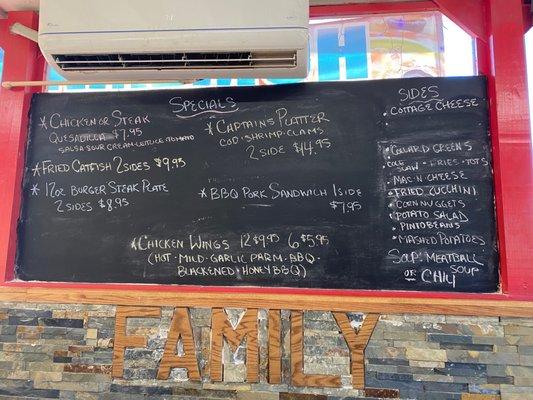 SPECIALS
* CHICKEN OR STEAK
QUESADILLA $7.95
SALSA·SOUR CREAM·LETTICE·TOMATO
* FRIED CATFISH 2 SIDES $9.95
* 12oz BURGER STEAK PLATE
2 SIDES $8.95
* CAPTAINS PLATTER
COD·SHRIMP·CLAMS
2 SIDE $14.95
* BBQ PORK SANDWICH 1 SIDE
$7.95
* CHICKEN WINGS 12 $9.95 6 $5.95
(HOT·MILD·GARLIC PARM·BBQ·
BLACKENED·HONEY BBQ)
SIDES
·COTTAGE CHEESE
·COLLARD GREENS
COLE SLAW ·FRIES·TOTS
·MAC·N·CHEESE
·FRIED ZUCCHINI
·CORN NUGGETS
·POTATO SALAD
·PINTO BEANS
·MASHED POTATOES
SOUP: MEATBALL SOUP
OR CHILY
FAMILY